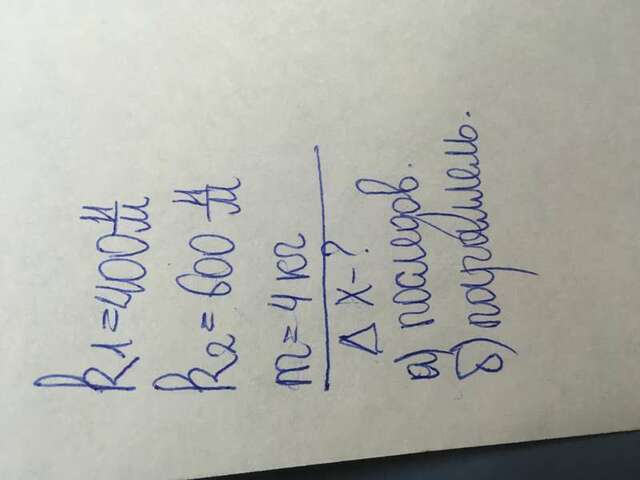 k1=400 н/м
k2=600 н/м
m=4 кг
Δ x-?
а) последов.
б) параллель.